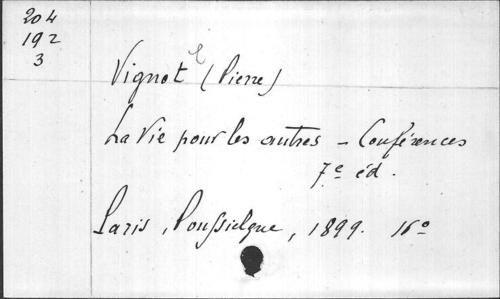 204
192
3
Vignot (Pierre)
La Vie pour les autres - Conférences
7e éd.
Paris, Poussielgue, 1899. 16o